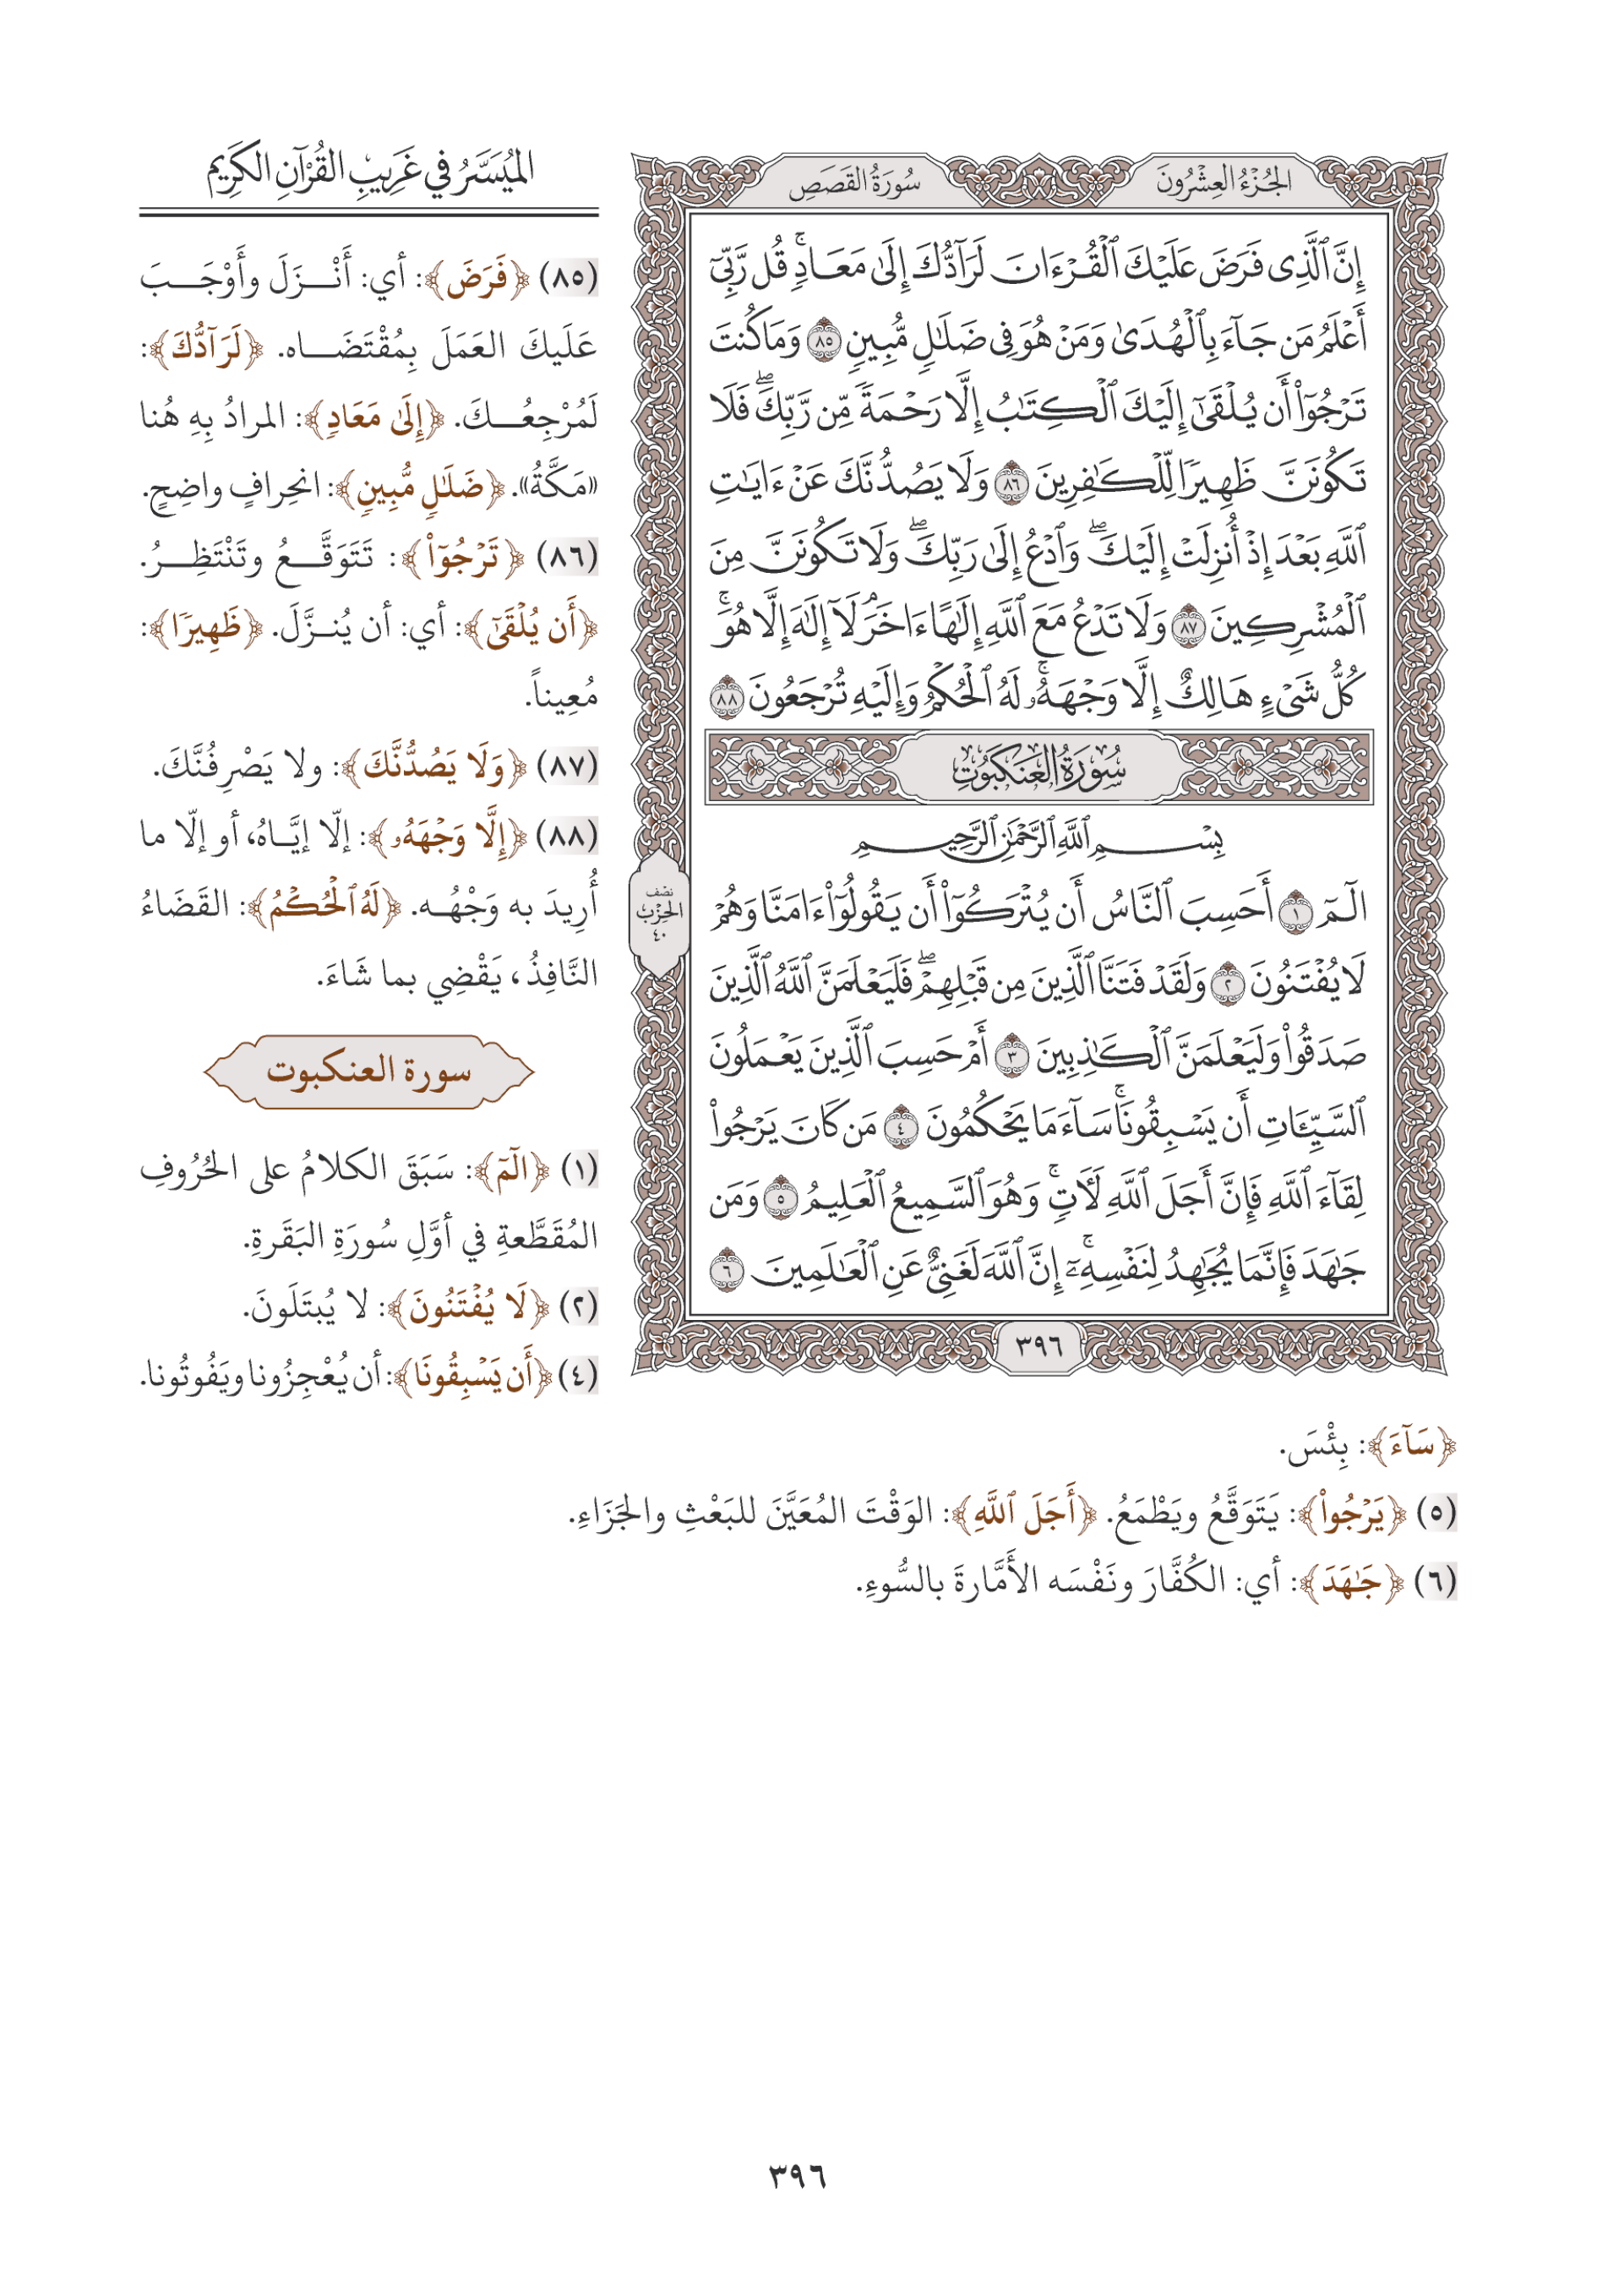 الجُزْءُ العِشْرُونَ
سُورَةُ القَصَصِ
إِنَّ ٱلَّذِى فَرَضَ عَلَيْكَ ٱلْقُرْءَانَ لَرَآدُّكَ إِلَىٰ مَعَادٍۚ قُل رَّبِّىٓ
أَعْلَمُ مَن جَآءَ بِٱلْهُدَىٰ وَمَنْ هُوَ فِى ضَلَٰلٍ مُّبِينٍ ٨٥ وَمَا كُنتَ
تَرْجُوٓا۟ أَن يُلْقَىٰٓ إِلَيْكَ ٱلْكِتَٰبُ إِلَّا رَحْمَةً مِّن رَّبِّكَۖ فَلَا
تَكُونَنَّ ظَهِيرًا لِّلْكَٰفِرِينَ ٨٦ وَلَا يَصُدُّنَّكَ عَنْ ءَايَٰتِ
ٱللَّهِ بَعْدَ إِذْ أُنزِلَتْ إِلَيْكَۖ وَٱدْعُ إِلَىٰ رَبِّكَۖ وَلَا تَكُونَنَّ مِنَ
ٱلْمُشْرِكِينَ ٨٧ وَلَا تَدْعُ مَعَ ٱللَّهِ إِلَٰهًا ءَاخَرَۘ لَآ إِلَٰهَ إِلَّا هُوَۚ
كُلُّ شَىْءٍ هَالِكٌ إِلَّا وَجْهَهُۥۚ لَهُ ٱلْحُكْمُ وَإِلَيْهِ تُرْجَعُونَ ٨٨
سُورَةُ العَنكَبُوتِ
بِسْمِ ٱللَّهِ ٱلرَّحْمَٰنِ ٱلرَّحِيمِ
الٓمٓ ١ أَحَسِبَ ٱلنَّاسُ أَن يُتْرَكُوٓا۟ أَن يَقُولُوٓا۟ ءَامَنَّا وَهُمْ
لَا يُفْتَنُونَ ٢ وَلَقَدْ فَتَنَّا ٱلَّذِينَ مِن قَبْلِهِمْۖ فَلَيَعْلَمَنَّ ٱللَّهُ ٱلَّذِينَ
صَدَقُوا۟ وَلَيَعْلَمَنَّ ٱلْكَٰذِبِينَ ٣ أَمْ حَسِبَ ٱلَّذِينَ يَعْمَلُونَ
ٱلسَّيِّـَٔاتِ أَن يَسْبِقُونَاۚ سَآءَ مَا يَحْكُمُونَ ٤ مَن كَانَ يَرْجُوا۟
لِقَآءَ ٱللَّهِ فَإِنَّ أَجَلَ ٱللَّهِ لَـَٔاتٍۚ وَهُوَ ٱلسَّمِيعُ ٱلْعَلِيمُ ٥ وَمَن
جَٰهَدَ فَإِنَّمَا يُجَٰهِدُ لِنَفْسِهِۦٓۚ إِنَّ ٱللَّهَ لَغَنِىٌّ عَنِ ٱلْعَٰلَمِينَ ٦
نصف
الحِزْب
٤٠
٣٩٦
المُيَسَّرُ في غَرِيبِ القُرْآنِ الكَرِيمِ
(٨٥) ﴿فَرَضَ﴾: أي: أَنْـزَلَ وأَوْجَـبَ
عَلَيكَ العَمَلَ بِمُقْتَضَـاه. ﴿لَرَآدُّكَ﴾:
لَمُرْجِعُـكَ. ﴿إِلَىٰ مَعَادٍ﴾: المرادُ بِهِ هُنا
«مَكَّةُ». ﴿ضَلَٰلٍ مُّبِينٍ﴾: انحِرافٍ واضِحٍ.
(٨٦) ﴿تَرْجُوٓا۟﴾: تَتَوَقَّـعُ وتَنْتَظِـرُ.
﴿أَن يُلْقَىٰٓ﴾: أي: أن يُنـزَّلَ. ﴿ظَهِيرًا﴾:
مُعِيناً.
(٨٧) ﴿وَلَا يَصُدُّنَّكَ﴾: ولا يَصْرِفُنَّكَ.
(٨٨) ﴿إِلَّا وَجْهَهُۥ﴾: إلّا إيَّـاهُ، أو إلّا ما
أُرِيدَ به وَجْهُـه. ﴿لَهُ ٱلْحُكْمُ﴾: القَضَاءُ
النَّافِذُ، يَقْضِي بما شَاءَ.
سورة العنكبوت
(١) ﴿الٓمٓ﴾: سَبَقَ الكلامُ على الحُرُوفِ
المُقَطَّعةِ في أوَّلِ سُورَةِ البَقَرةِ.
(٢) ﴿لَا يُفْتَنُونَ﴾: لا يُبتَلَونَ.
(٤) ﴿أَن يَسْبِقُونَا﴾: أن يُعْجِزُونا ويَفُوتُونا.
﴿سَآءَ﴾: بِئْسَ.
(٥) ﴿يَرْجُوا۟﴾: يَتَوَقَّعُ ويَطْمَعُ. ﴿أَجَلَ ٱللَّهِ﴾: الوَقْتَ المُعَيَّنَ للبَعْثِ والجَزَاءِ.
(٦) ﴿جَٰهَدَ﴾: أي: الكُفَّارَ ونَفْسَه الأَمَّارةَ بالسُّوءِ.
٣٩٦